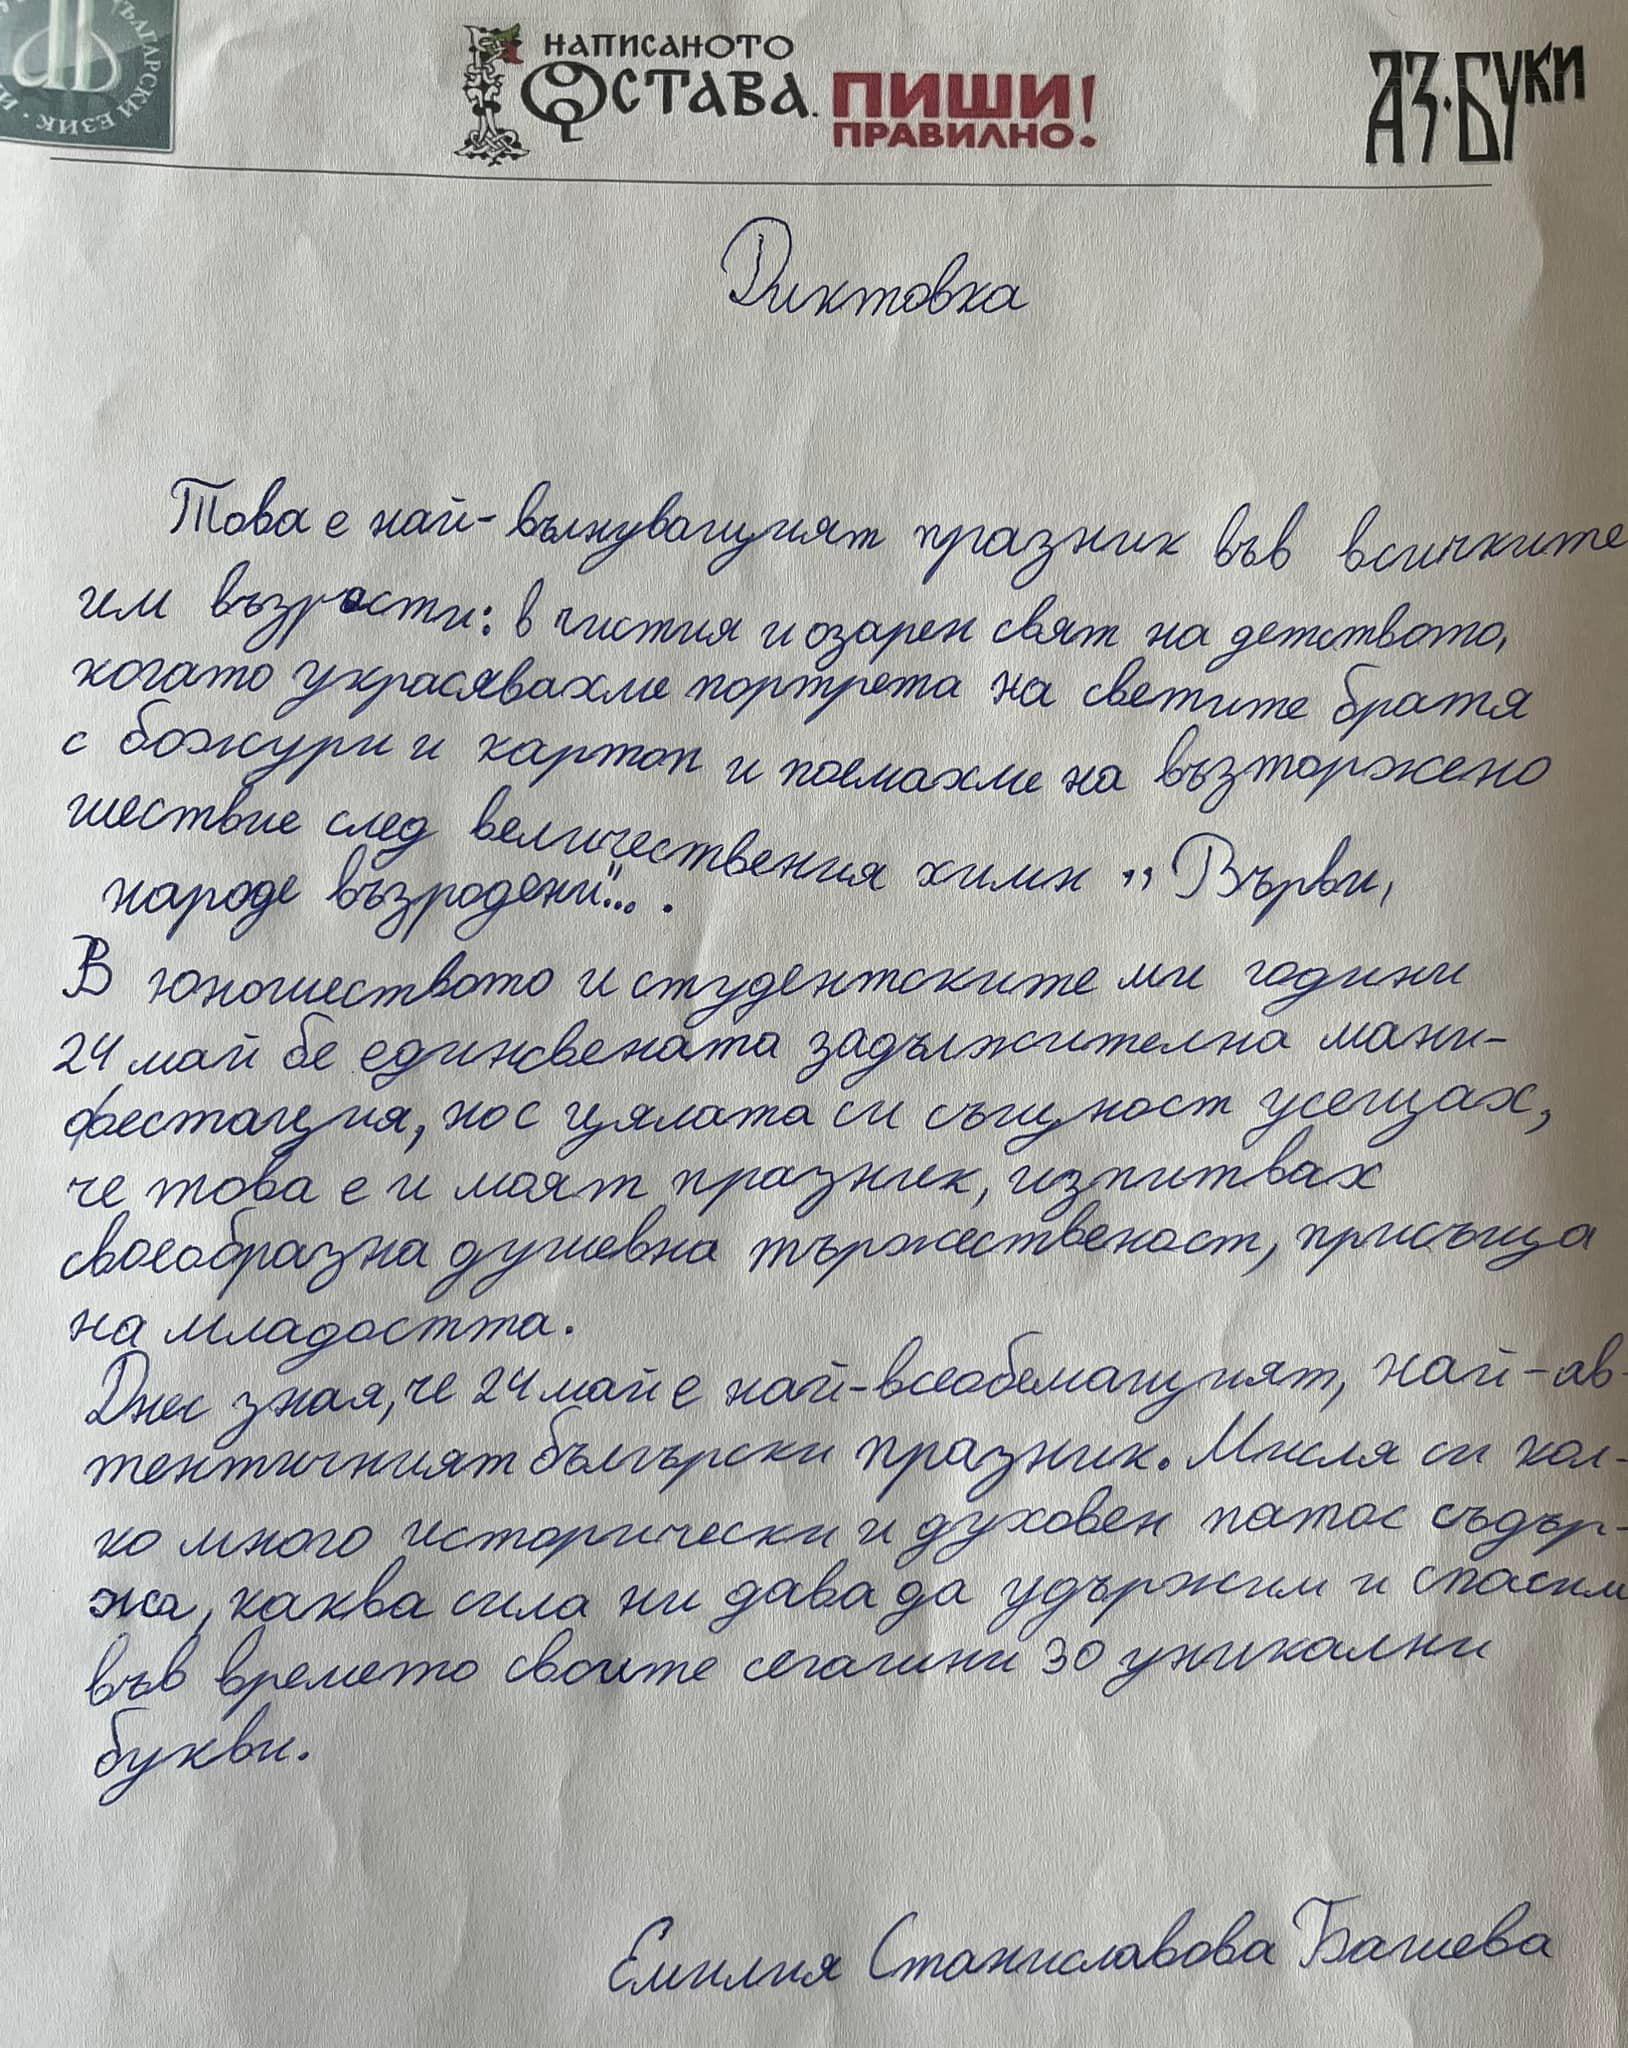 БЪЛГАРСКИ ЕЗИК
НАПИСАНОТО
ОСТАВА. ПИШИ
ПРАВИЛНО!
АЗ·БУКИ
Диктовка
Това е най-вълнуващият празник във всичките
им възрасти: в чистия и озарен свят на детството,
когато украсявахме портрета на светите братя
с божури и картоп и поемахме на възторжено
шествие след величествения химн „Върви,
народе възродени"... .
В юношеството и студентските ми години
24 май бе единсвената задължителна мани-
фестация, но с цялата си същност усещах,
че това е и моят празник, изпитвах
своеобразна душевна тържественост, присъща
на младостта.
Днес зная, че 24 май е най-всеобемащият, най-ав-
тентичният български празник. Мисля си кол-
ко много исторически и духовен патос съдър-
жа, каква сила ни дава да удържим и спасим
във времето своите сегашни 30 уникални
букви.
Емилия Станиславова Башева